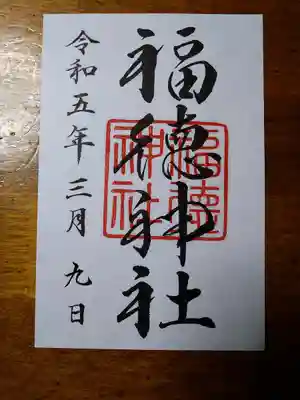 福徳神社
福徳
神社
令和五年三月九日